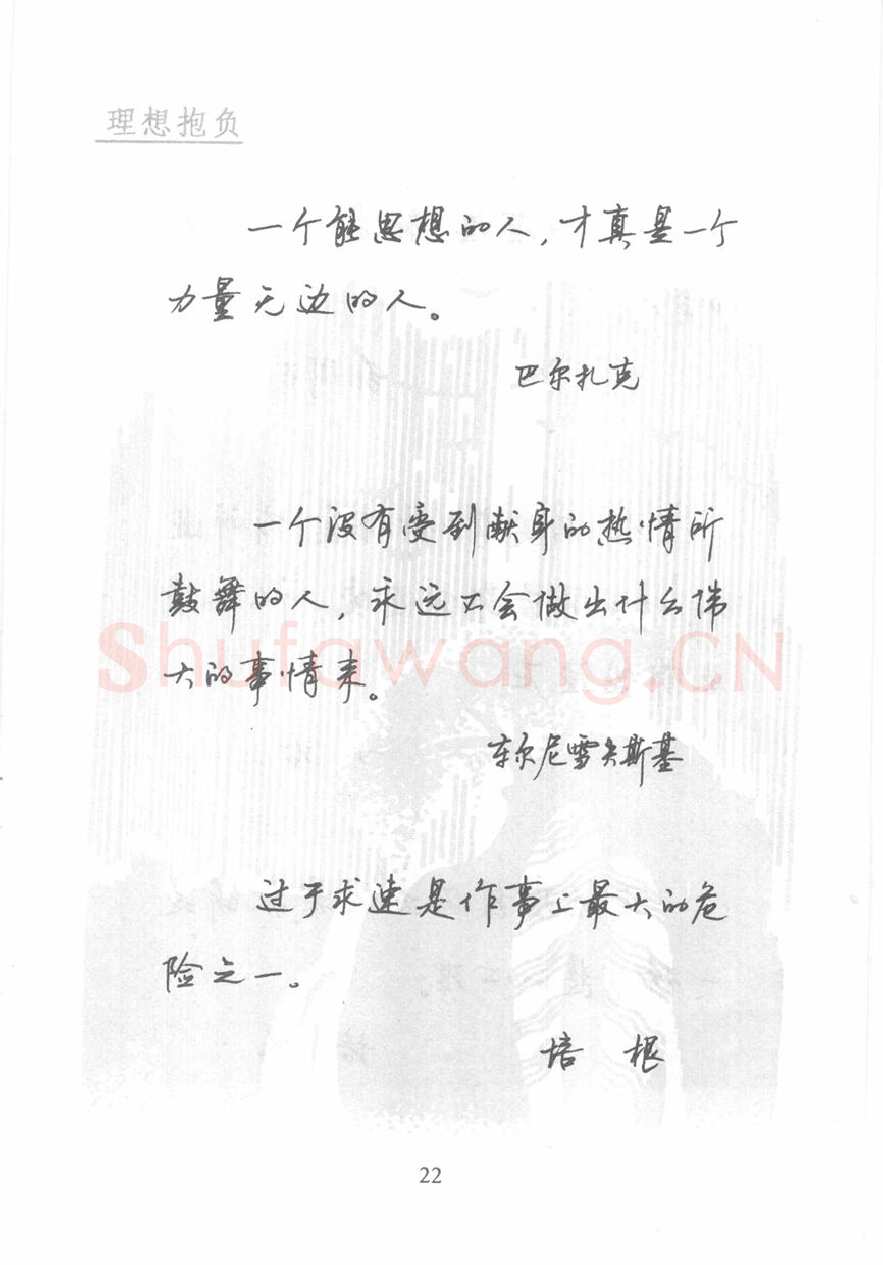 理想抱负
一个能思想的人，才真是一个
力量无边的人。
巴尔扎克
一个没有受到献身的热情所
鼓舞的人，永远不会做出什么伟
大的事情来。
车尔尼雪夫斯基
过于求速是作事上最大的危
险之一。
培 根
22
Shufawang.CN